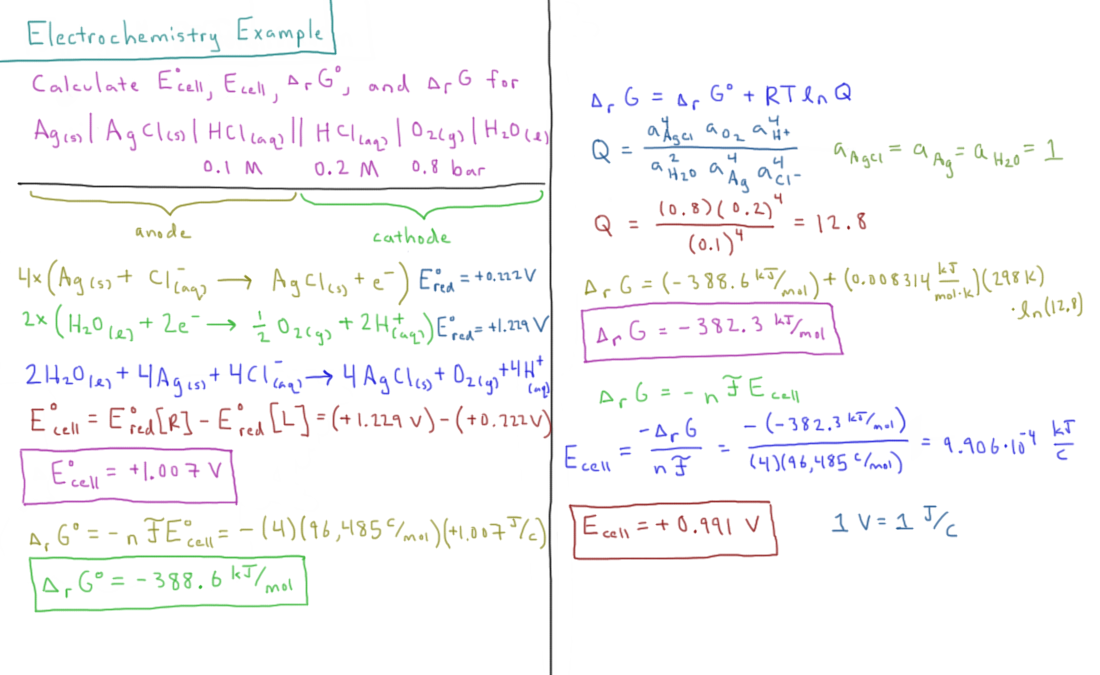 Electrochemistry Example
Calculate E°cell, Ecell, ΔrG°, and ΔrG for
Ag(s) | AgCl(s) | HCl(aq) || HCl(aq) | O₂(g) | H₂O(ℓ)
0.1 M 0.2 M 0.8 bar
anode cathode
4x (Ag(s) + Cl⁻(aq) → AgCl(s) + e⁻) E°red = +0.222 V
2x (H₂O(ℓ) + 2e⁻ → ½ O₂(g) + 2H⁺(aq)) E°red = +1.229 V
2H₂O(ℓ) + 4Ag(s) + 4Cl⁻(aq) → 4AgCl(s) + O₂(g) + 4H⁺(aq)
E°cell = E°red[R] - E°red[L] = (+1.229 V) - (+0.222 V)
E°cell = +1.007 V
ΔrG° = -nFE°cell = -(4)(96,485 C/mol)(+1.007 J/C)
ΔrG° = -388.6 kJ/mol
ΔrG = ΔrG° + RT ln Q
Q = a⁴AgCl aO₂ a⁴H⁺ / a²H₂O a⁴Ag a⁴Cl⁻ aAgCl = aAg = aH₂O = 1
Q = (0.8)(0.2)⁴ / (0.1)⁴ = 12.8
ΔrG = (-388.6 kJ/mol) + (0.008314 kJ/mol·K)(298 K)
· ln(12.8)
ΔrG = -382.3 kJ/mol
ΔrG = -nFEcell
Ecell = -ΔrG / nF = -(-382.3 kJ/mol) / (4)(96,485 C/mol) = 9.906·10⁻⁴ kJ/C
Ecell = +0.991 V 1 V = 1 J/C